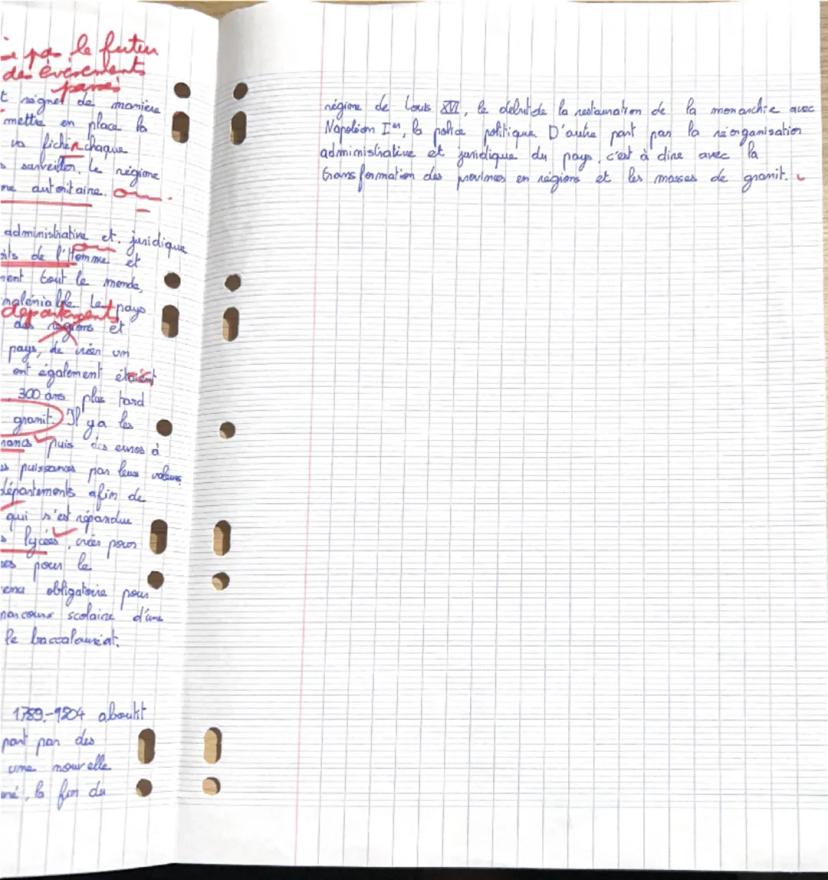 pa le futur
des évènements
passés
t régner de manière
mettre en place la
va ficher chaque
s surveiller, le régime
me autoritaire.
administrative et juridique
its de l'Homme et
ment tout le monde,
Le pays
départements
des régions et
pays, de créer un
ont également étaient
300 ans plus tard
granit. Il y a les
puis des euros à
puissances par leurs valeurs
départements afin de
qui s'est répandue
s lycées, crées pour
ses pour le
obligatoire pour
parcours scolaire d'une
le baccalauréat.
1789-1804 aboutit
part par des
une nouvelle
, la fin du
régime de Louis XVI, le début de la restauration de la monarchie avec
Napoléon Ier, la police politique D'autre part par la réorganisation
administrative et juridique du pays, c'est à dire avec la
transformation des provinces en régions et les masses de granit.